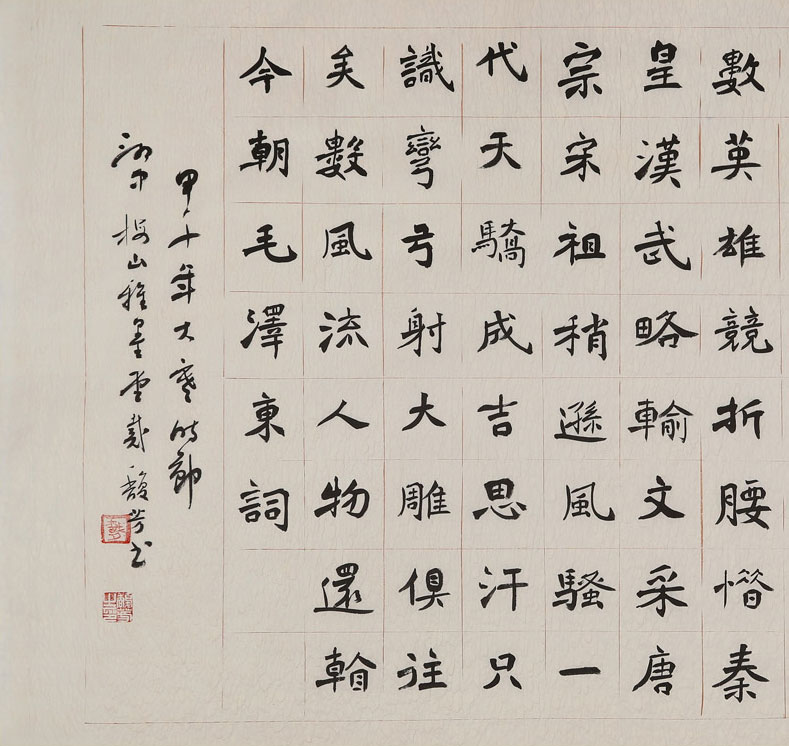 數英雄競折腰惜秦
皇漢武略輸文采唐
宗宋祖稍遜風騷一
代天驕成吉思汗只
識彎弓射大雕俱往
矣數風流人物還看
今朝毛澤東詞
甲午年大寒時節
梅山雅墨堂戴馥芳书